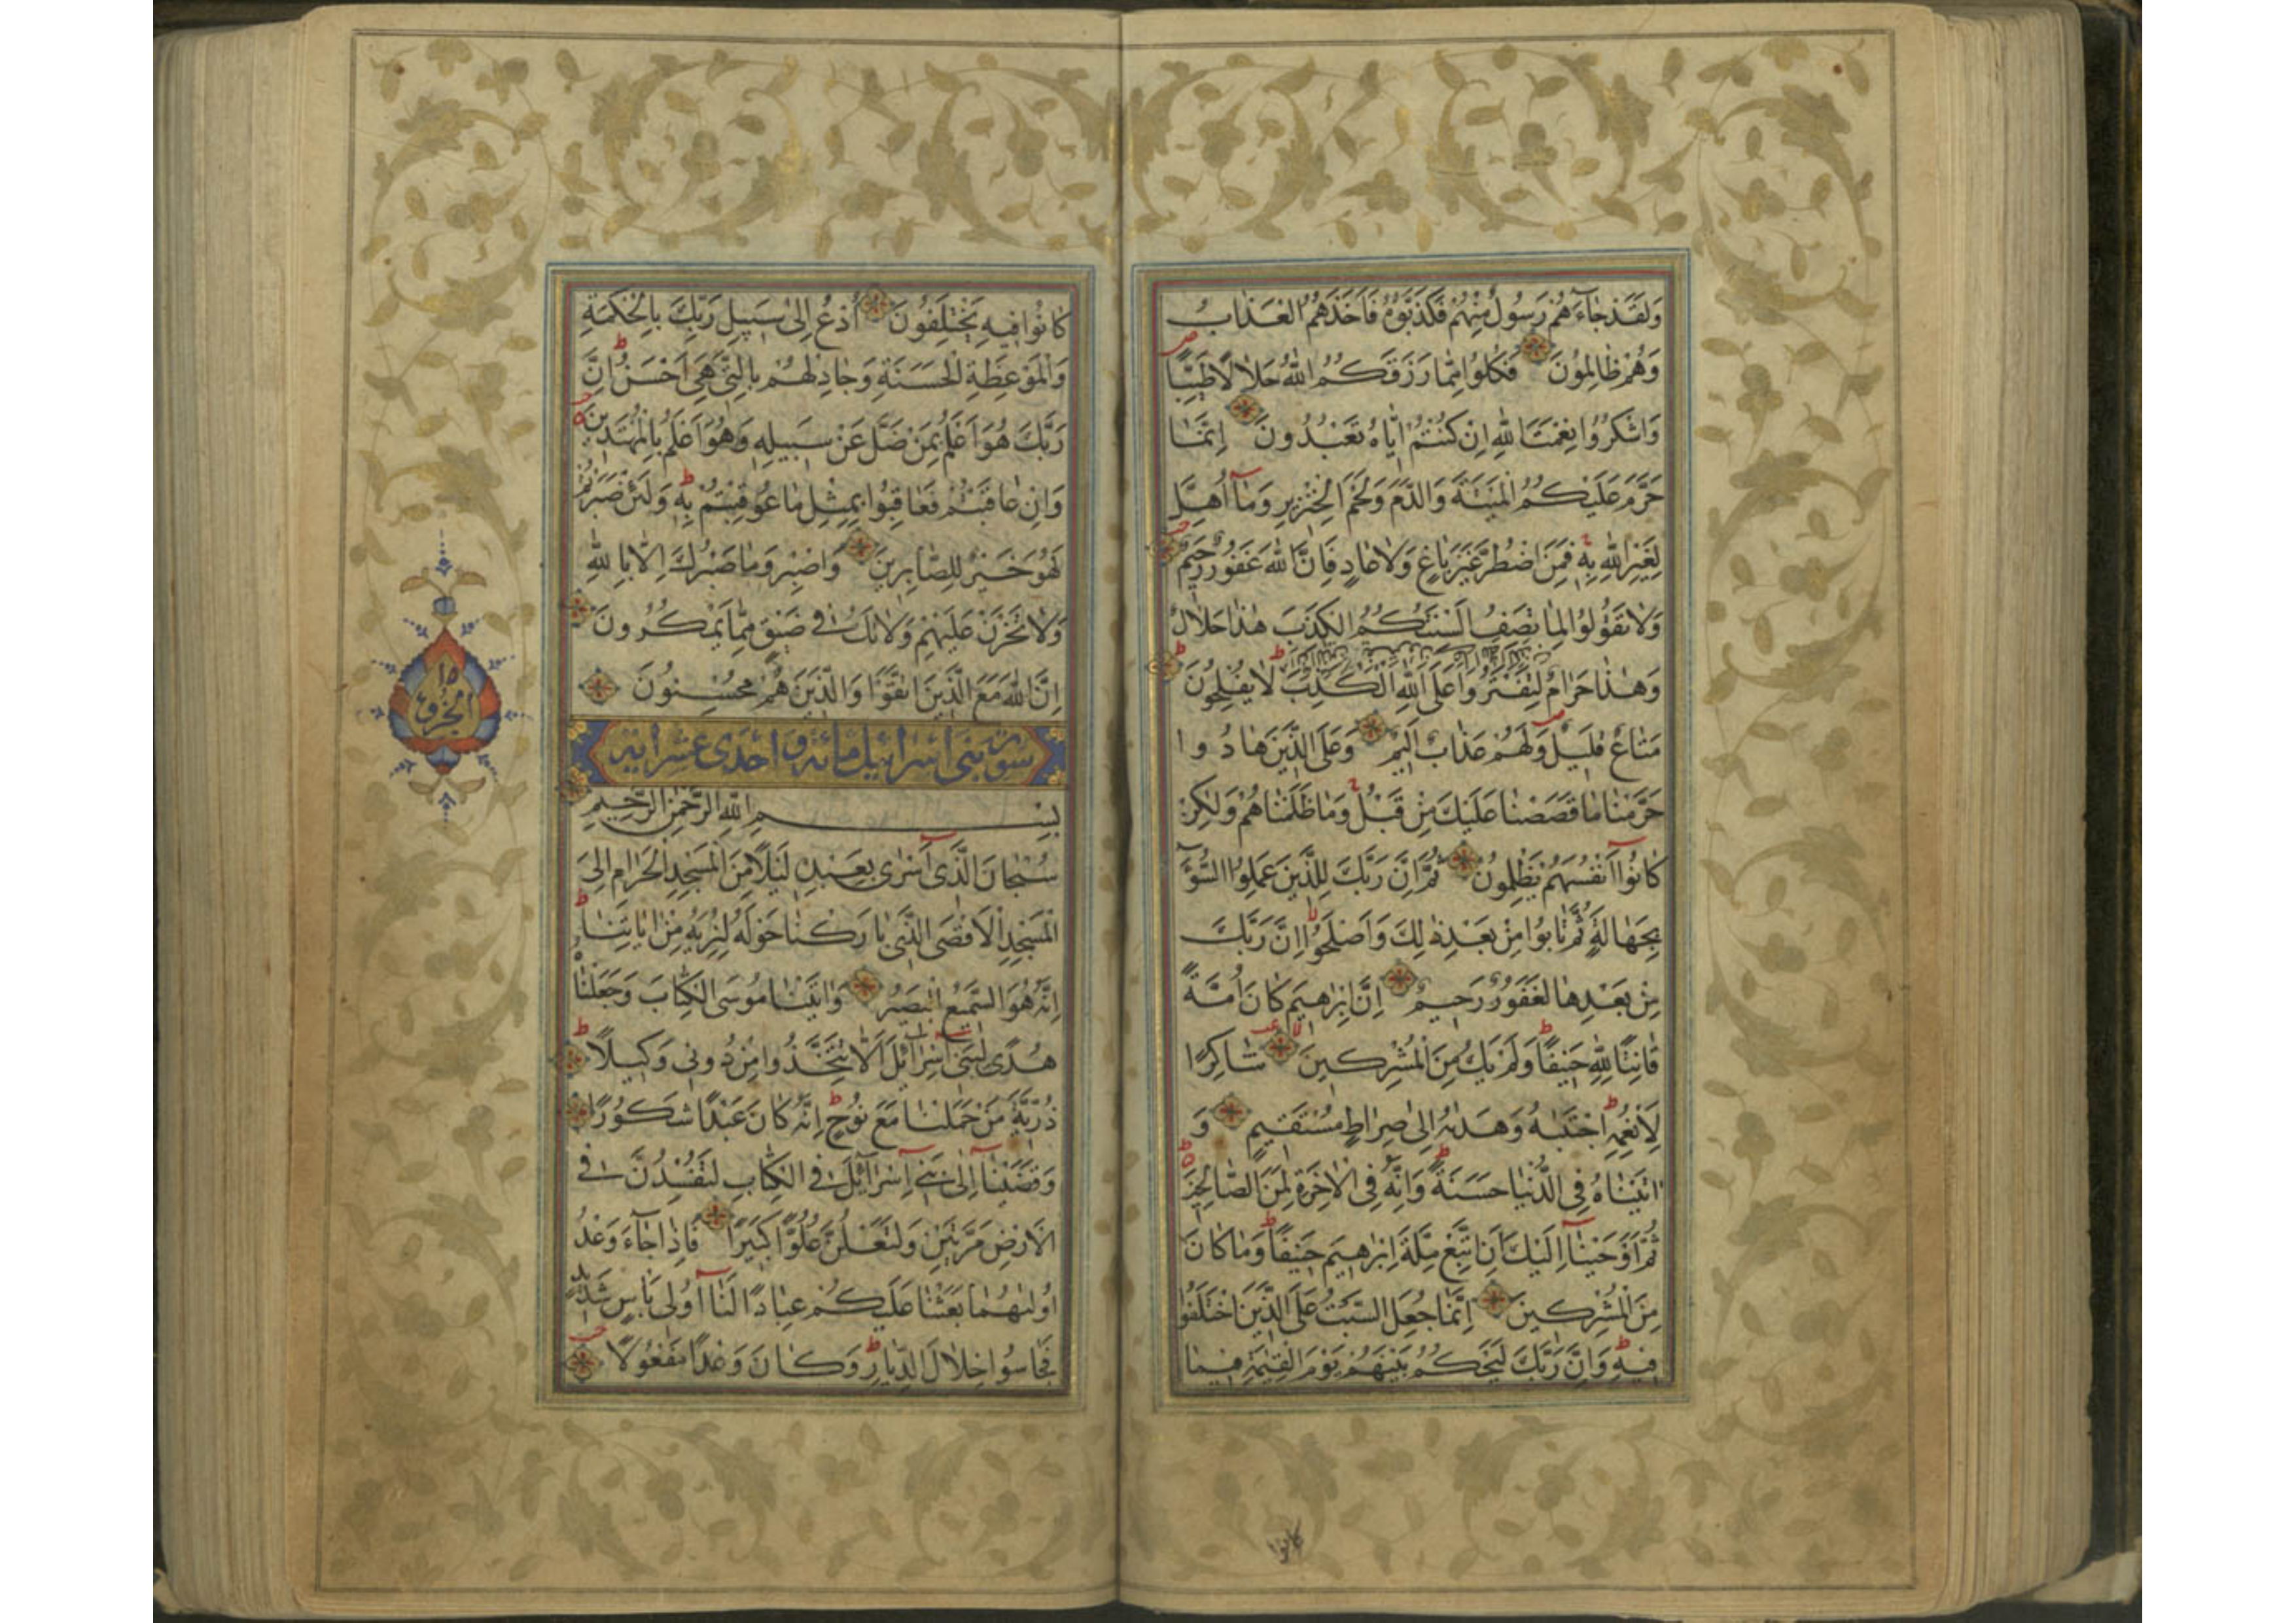 وَلَقَدْ جَاءَهُمْ رَسُولٌ مِنْهُمْ فَكَذَّبُوهُ فَاَخَذَهُمُ الْعَذَابُ
وَهُمْ ظَالِمُونَ فَكُلُوا مِمَّا رَزَقَكُمُ اللّٰهُ حَلَالًا طَيِّبًا
وَاشْكُرُوا نِعْمَتَ اللّٰهِ اِنْ كُنْتُمْ اِيَّاهُ تَعْبُدُونَ اِنَّمَا
حَرَّمَ عَلَيْكُمُ الْمَيْتَةَ وَالدَّمَ وَلَحْمَ الْخِنْزِيرِ وَمَآ اُهِلَّ
لِغَيْرِ اللّٰهِ بِهٖ فَمَنِ اضْطُرَّ غَيْرَ بَاغٍ وَلَا عَادٍ فَاِنَّ اللّٰهَ غَفُورٌ رَحِيمٌ
وَلَا تَقُولُوا لِمَا تَصِفُ اَلْسِنَتُكُمُ الْكَذِبَ هٰذَا حَلَالٌ
وَهٰذَا حَرَامٌ لِتَفْتَرُوا عَلَى اللّٰهِ الْكَذِبَ لَا يُفْلِحُونَ
مَتَاعٌ قَلِيلٌ وَلَهُمْ عَذَابٌ اَلِيمٌ وَعَلَى الَّذِينَ هَادُوا
حَرَّمْنَا مَا قَصَصْنَا عَلَيْكَ مِنْ قَبْلُ وَمَا ظَلَمْنَاهُمْ وَلٰكِنْ
كَانُوٓا اَنْفُسَهُمْ يَظْلِمُونَ ثُمَّ اِنَّ رَبَّكَ لِلَّذِينَ عَمِلُوا السُّوٓءَ
بِجَهَالَةٍ ثُمَّ تَابُوا مِنْ بَعْدِ ذٰلِكَ وَاَصْلَحُوٓا اِنَّ رَبَّكَ
مِنْ بَعْدِهَا لَغَفُورٌ رَحِيمٌ اِنَّ اِبْرٰهِيمَ كَانَ اُمَّةً
قَانِتًا لِلّٰهِ حَنِيفًا وَلَمْ يَكُ مِنَ الْمُشْرِكِينَ شَاكِرًا
لِاَنْعُمِهٖ اجْتَبٰيهُ وَهَدٰيهُ اِلٰى صِرَاطٍ مُسْتَقِيمٍ وَ
اٰتَيْنَاهُ فِي الدُّنْيَا حَسَنَةً وَاِنَّهُ فِي الْاٰخِرَةِ لَمِنَ الصَّالِحِينَ
ثُمَّ اَوْحَيْنَآ اِلَيْكَ اَنِ اتَّبِعْ مِلَّةَ اِبْرٰهِيمَ حَنِيفًا وَمَا كَانَ
مِنَ الْمُشْرِكِينَ اِنَّمَا جُعِلَ السَّبْتُ عَلَى الَّذِينَ اخْتَلَفُوا
فِيهِ وَاِنَّ رَبَّكَ لَيَحْكُمُ بَيْنَهُمْ يَوْمَ الْقِيٰمَةِ فِيمَا
كانوا
كَانُوا فِيهِ يَخْتَلِفُونَ اُدْعُ اِلٰى سَبِيلِ رَبِّكَ بِالْحِكْمَةِ
وَالْمَوْعِظَةِ الْحَسَنَةِ وَجَادِلْهُمْ بِالَّتِي هِيَ اَحْسَنُ اِنَّ
رَبَّكَ هُوَ اَعْلَمُ بِمَنْ ضَلَّ عَنْ سَبِيلِهِ وَهُوَ اَعْلَمُ بِالْمُهْتَدِينَ
وَاِنْ عَاقَبْتُمْ فَعَاقِبُوا بِمِثْلِ مَا عُوقِبْتُمْ بِهٖ وَلَئِنْ صَبَرْتُمْ
لَهُوَ خَيْرٌ لِلصَّابِرِينَ وَاصْبِرْ وَمَا صَبْرُكَ اِلَّا بِاللّٰهِ
وَلَا تَحْزَنْ عَلَيْهِمْ وَلَا تَكُ فِي ضَيْقٍ مِمَّا يَمْكُرُونَ
اِنَّ اللّٰهَ مَعَ الَّذِينَ اتَّقَوْا وَالَّذِينَ هُمْ مُحْسِنُونَ
سورة بنى اسرائيل مائة و احدى عشر اية
بِسْمِ اللّٰهِ الرَّحْمٰنِ الرَّحِيمِ
سُبْحَانَ الَّذِىٓ اَسْرٰى بِعَبْدِهِ لَيْلًا مِنَ الْمَسْجِدِ الْحَرَامِ اِلَى
الْمَسْجِدِ الْاَقْصَى الَّذِي بَارَكْنَا حَوْلَهُ لِنُرِيَهُ مِنْ اٰيَاتِنَا
اِنَّهُ هُوَ السَّمِيعُ الْبَصِيرُ وَاٰتَيْنَا مُوسَى الْكِتَابَ وَجَعَلْنَاهُ
هُدًى لِبَنِىٓ اِسْرَآئِيلَ اَلَّا تَتَّخِذُوا مِنْ دُونِي وَكِيلًا
ذُرِّيَّةَ مَنْ حَمَلْنَا مَعَ نُوحٍ اِنَّهُ كَانَ عَبْدًا شَكُورًا
وَقَضَيْنَآ اِلٰى بَنِىٓ اِسْرَآئِيلَ فِي الْكِتَابِ لَتُفْسِدُنَّ فِي
الْاَرْضِ مَرَّتَيْنِ وَلَتَعْلُنَّ عُلُوًّا كَبِيرًا فَاِذَا جَآءَ وَعْدُ
اُولٰيهُمَا بَعَثْنَا عَلَيْكُمْ عِبَادًا لَنَآ اُولِي بَاْسٍ شَدِيدٍ
فَجَاسُوا خِلَالَ الدِّيَارِ وَكَانَ وَعْدًا مَفْعُولًا
١٥
الجزو